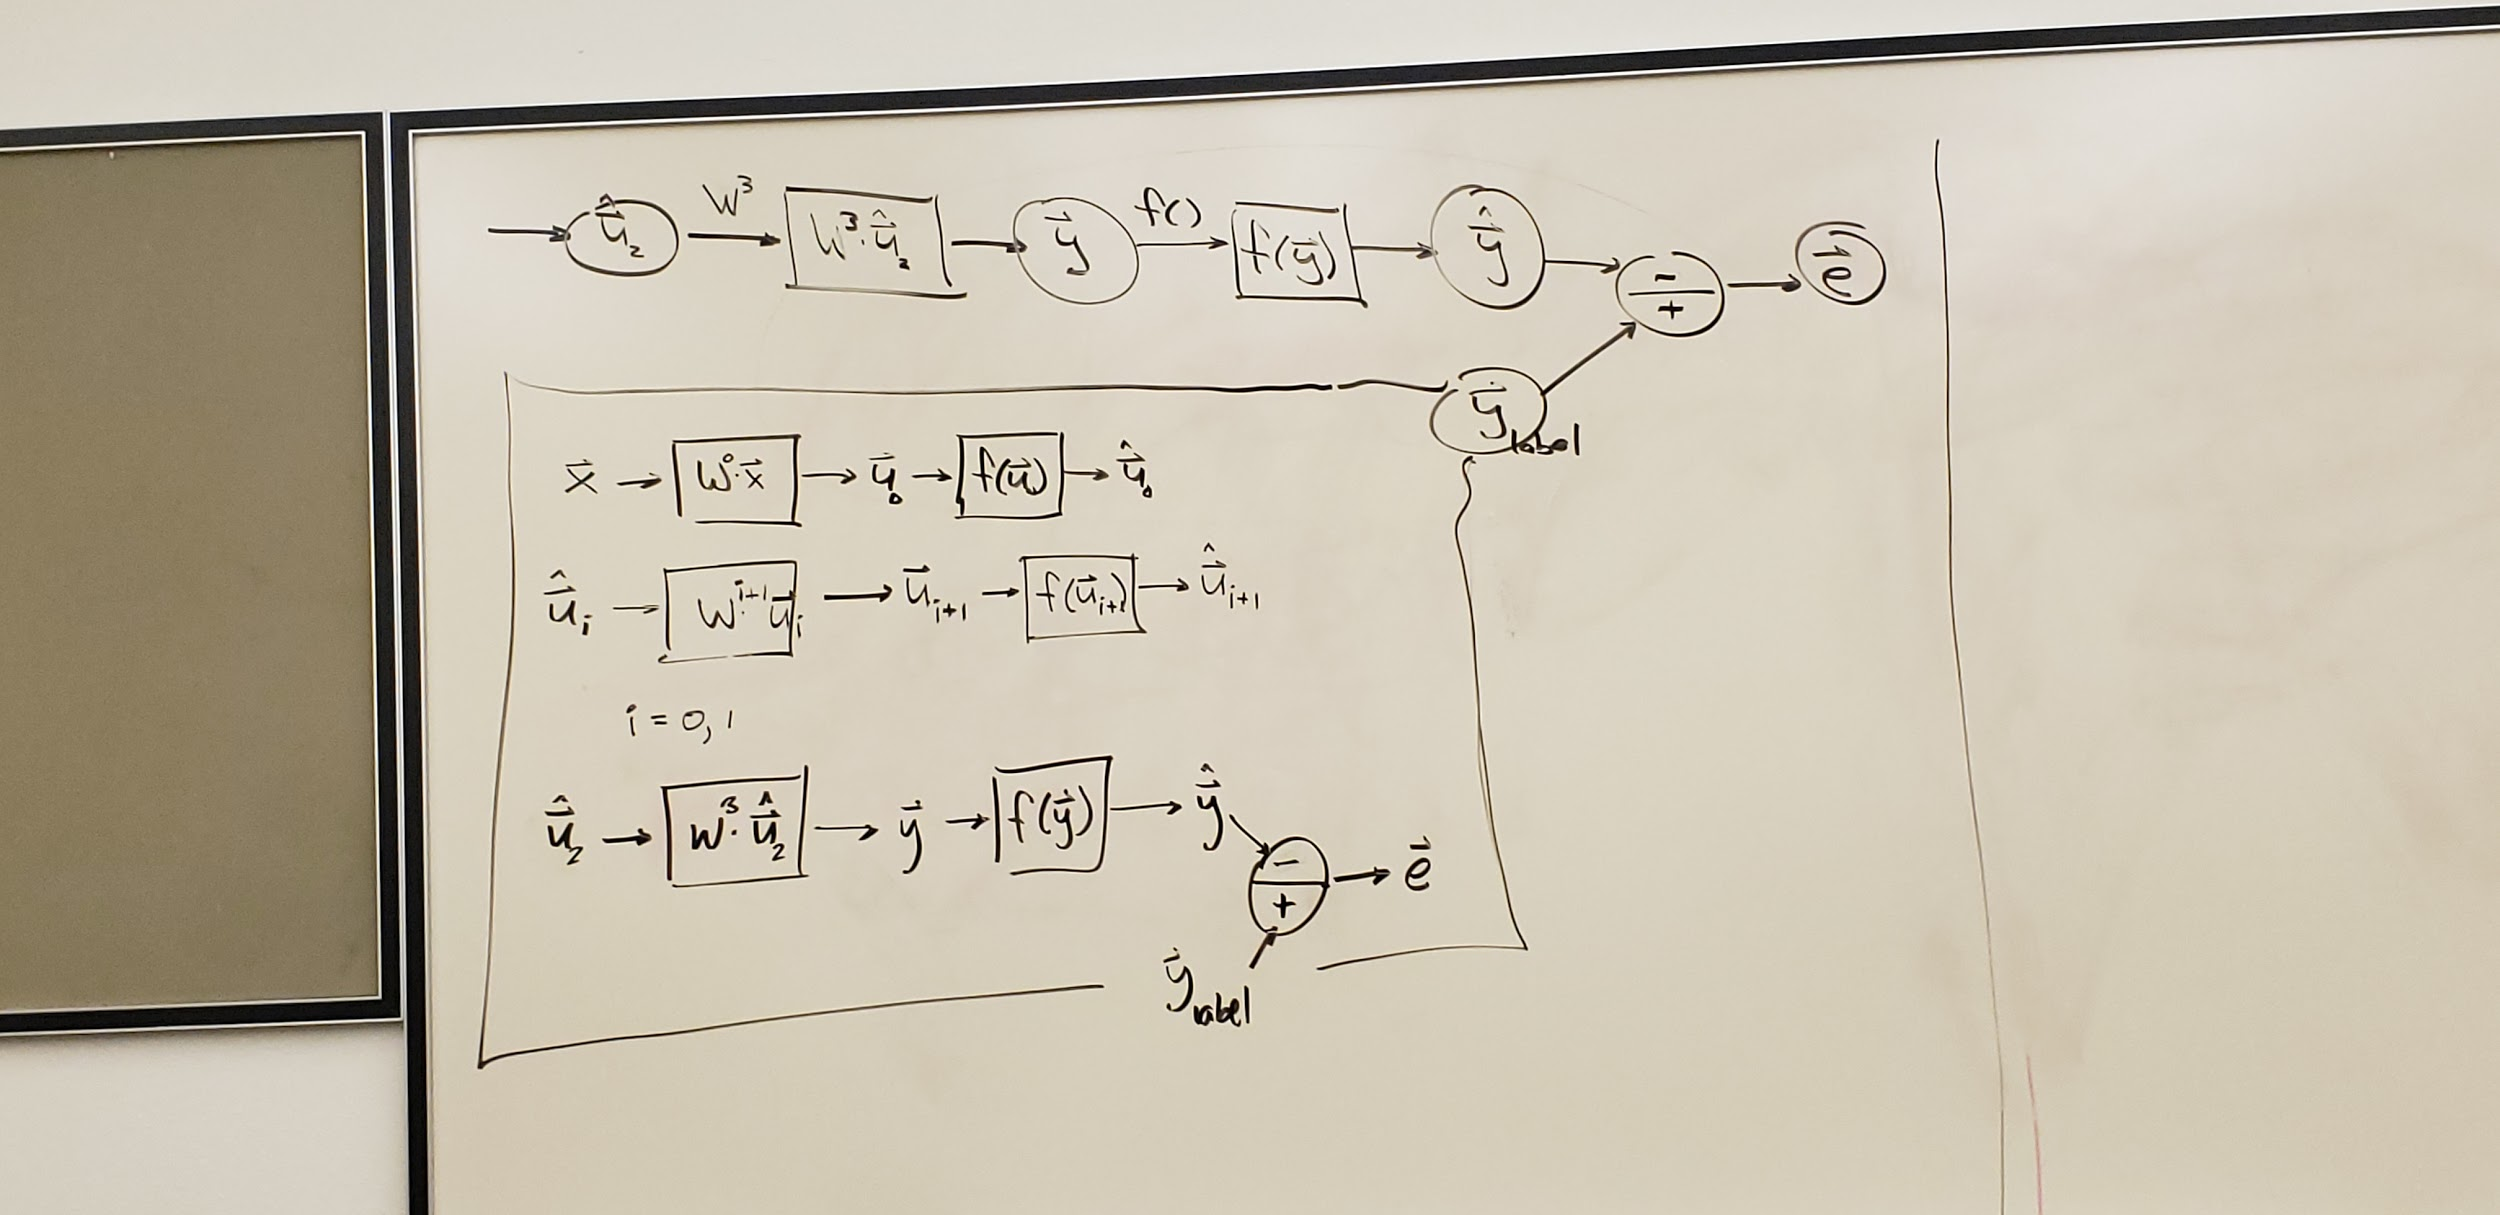 → û⃗₂ W³ → W³·û⃗₂ → y⃗ f() → f(y⃗) → ŷ⃗ → - + → e⃗
y⃗label
x⃗ → W⁰·x⃗ → u⃗₀ → f(u⃗) → û⃗₀
û⃗ᵢ → Wⁱ⁺¹·u⃗ᵢ → u⃗ᵢ₊₁ → f(u⃗ᵢ₊₁) → û⃗ᵢ₊₁
i = 0, 1
û⃗₂ → W³·û⃗₂ → y⃗ → f(y⃗) → ŷ⃗ - + → e⃗
y⃗label